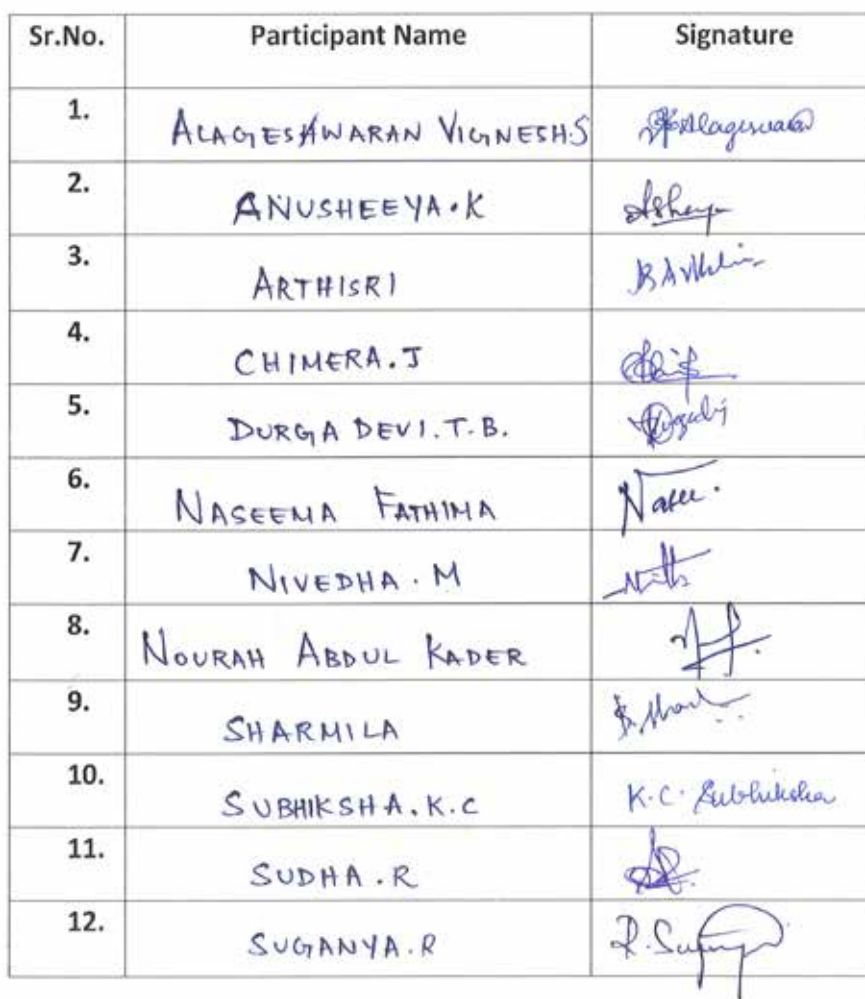 Sr.No. Participant Name Signature
1. ALAGESHWARAN VIGNESH.S
2. ANUSHEEYA.K
3. ARTHISRI
4. CHIMERA.J
5. DURGA DEVI.T.B.
6. NASEEMA FATHIMA
7. NIVEDHA.M
8. NOURAH ABDUL KADER
9. SHARMILA
10. SUBHIKSHA.K.C K.C. Subhiksha
11. SUDHA.R
12. SUGANYA.R